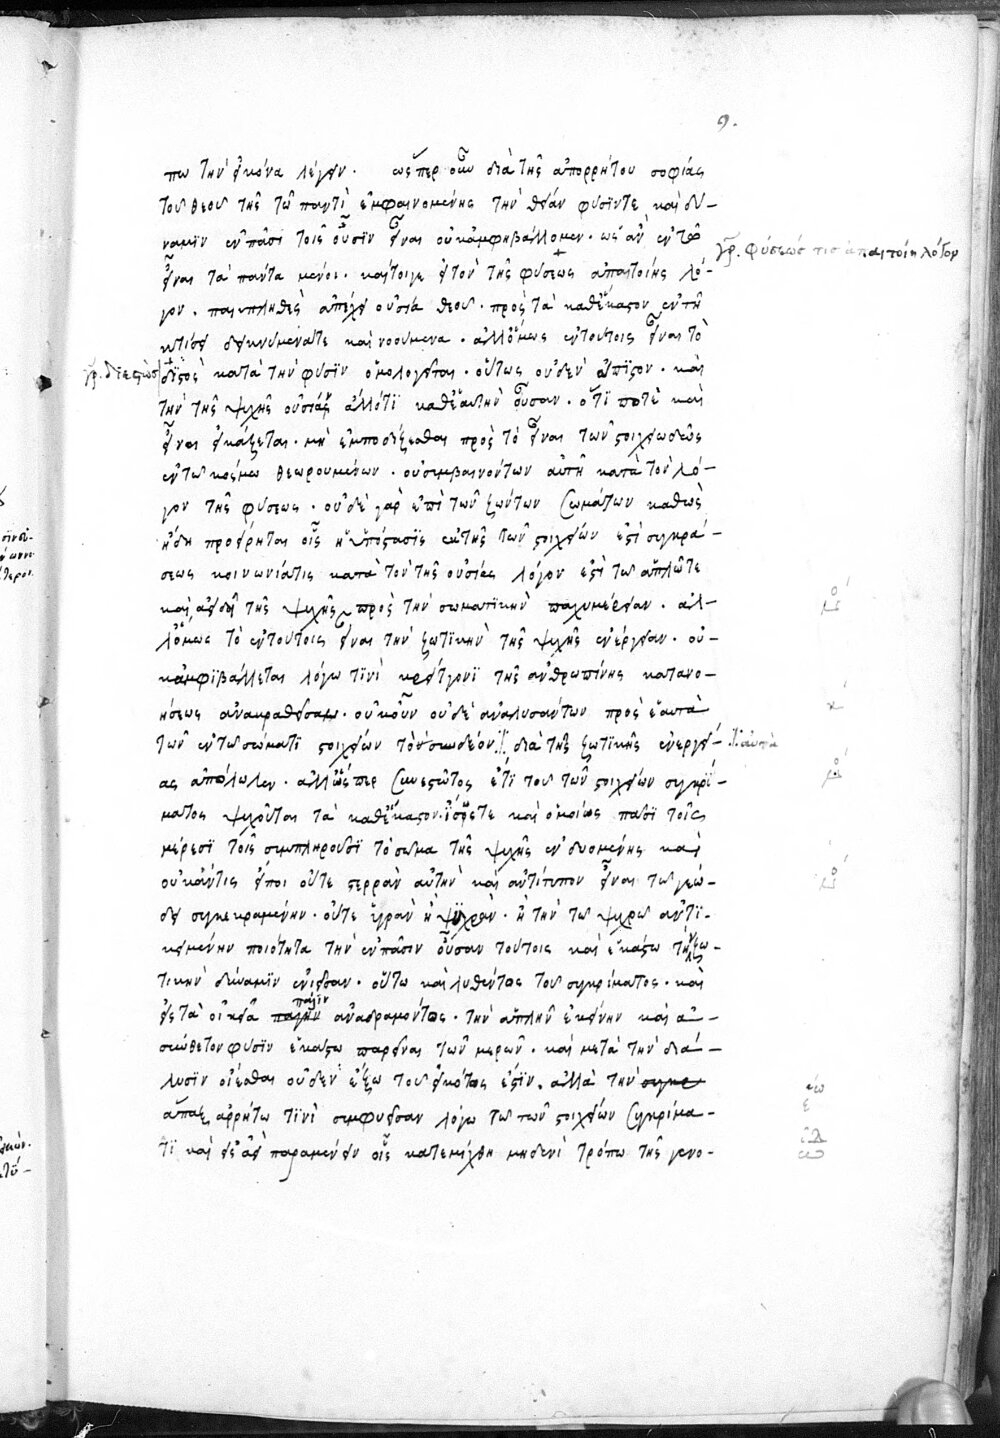 9.
πω τὴν εἰκόνα λέγειν. ὥσπερ οὖν διὰ τῆς ἀπορρήτου σοφίας
τοῦ θεοῦ τῆς τῷ παντὶ ἐμφαινομένης τὴν θείαν φύσιν τε καὶ δύ-
ναμιν ἐν πᾶσι τοῖς οὖσιν εἶναι οὐκ ἀμφιβάλλομεν. ὡς ἂν ἐν τῷ
εἶναι τὰ πάντα μένοι. καίτοιγε εἰ τὸν τῆς φύσεως ἀπαιτοίης λό-
γρ. φύσεώς τις ἀπαιτοίη λόγον
γον. παμπληθὲς ἀπέχει οὐσία θεοῦ. πρὸς τὰ καθέκαστον ἐν τῇ
κτίσει δεικνύμενά τε καὶ νοούμενα. ἀλλ' ὅμως ἐν τούτοις εἶναι τὸ
γρ. διεστὼς
διεστὸς κατὰ τὴν φύσιν ὁμολογεῖται. οὕτως οὐδὲν ἄπιστον. καὶ
τὴν τῆς ψυχῆς οὐσίαν ἄλλό τι καθ' ἑαυτὴν οὖσαν. ὅ τι ποτὲ καὶ
εἶναι εἰκάζεται. μὴ ἐμποδίζεσθαι πρὸς τὸ εἶναι τῶν στοιχειωδῶς
ἐν τῷ κόσμω θεωρουμένων. οὐ συμβαινόντων αὐτῇ κατὰ τὸν λό-
γον τῆς φύσεως. οὐδὲ γὰρ ἐπὶ τῶν ζώντων σωμάτων καθὼς
ἤδη προείρηται οἷς ἡ ὑπόστασις ἐκ τῆς τῶν στοιχείων ἐστὶ συγκρά-
σεως κοινωνία τις κατὰ τὸν τῆς οὐσίας λόγον ἐστὶ τῷ ἁπλῷ τε
καὶ ἀειδεῖ τῆς ψυχῆς πρὸς τὴν σωματικὴν παχυμέρειαν. ἀλ-
λ' ὅμως τὸ ἐν τούτοις εἶναι τὴν ζωτικὴν τῆς ψυχῆς ἐνέργειαν. οὐ-
κ ἀμφιβάλλεται λόγω τινὶ κρείττονι τῆς ἀνθρωπίνης κατανο-
ήσεως ἀνακραθεῖσαν. οὐκοῦν οὐδὲ ἀναλυσάντων πρὸς ἑαυτὰ
τῶν ἐν τῷ σώματι στοιχείων τὸ συνδέον διὰ τῆς ζωτικῆς ἐνεργεί-
αὐτὰ
ας ἀπόλωλεν. ἀλλ' ὥσπερ συνεστῶτος ἔτι τοῦ τῶν στοιχείων συγκρί-
ματος ψυχοῦται τὰ καθέκαστον. ἴσως τε καὶ ὁμοίως πᾶσι τοῖς
μέρεσι τοῖς συμπληροῦσι τὸ σῶμα τῆς ψυχῆς ἐνδυομένης καὶ
οὐκ ἄν τις εἴποι οὔτε στερρὰν αὐτὴν καὶ ἀντίτυπον εἶναι τῷ γεώ-
δει συγκεκραμένην. οὔτε ὑγρὰν ἢ ψυχρὰν. ἢ τὴν τῷ ψυχρῷ ἀντι-
κειμένην ποιότητα τὴν ἐν πᾶσιν οὖσαν τούτοις καὶ ἑκάστω τὴν ζω-
τικὴν δύναμιν ἐνιεῖσαν. οὕτω καὶ λυθέντος τοῦ συγκρίματος. καὶ
εἰς τὰ οἰκεῖα πάλιν ἀναδραμόντος. τὴν ἁπλῆν ἐκείνην καὶ ἀ-
σύνθετον φύσιν ἑκάστω παρεῖναι τῶν μερῶν. καὶ μετὰ τὴν διά-
λυσιν οἴεσθαι οὐδὲν ἔξω τοῦ εἰκότος ἐστίν. ἀλλὰ τὴν
ἅπαξ ἀρρήτω τινὶ συμφυεῖσαν λόγω τῷ τῶν στοιχείων συγκρίμα-
τι καὶ εἰς ἀεὶ παραμένειν οἷς κατεμίχθη μηδενὶ τρόπω τῆς γενο-